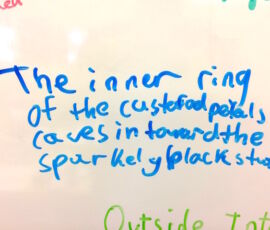 The inner ring
of the custerod petals
caves in toward the
sparkely black
Outside